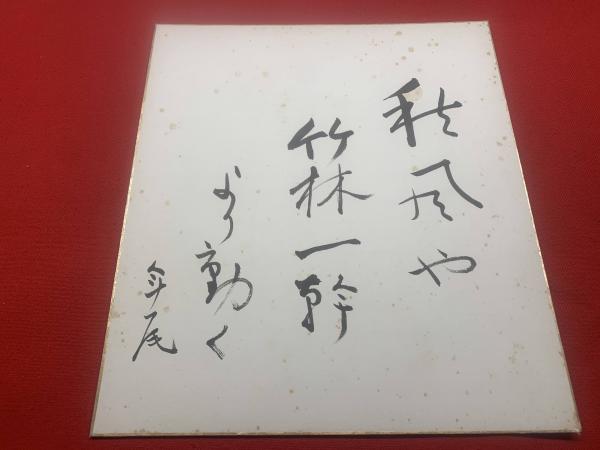 秋風や
竹林一幹
より動く